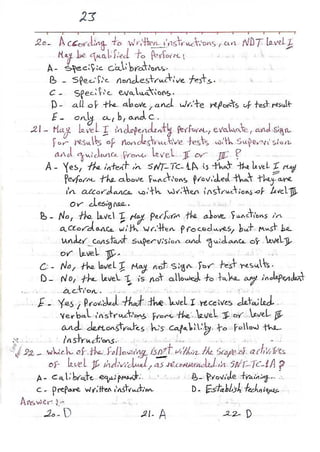 23
20- According to written instructions, an NDT level I
May be qualified to perform:
A- Specific Calibrations.
B - Specific nondestructive tests.
C - Specific evaluations.
D- all of the above, and write reports of test result
E- only a, b, and c.
21- May level I independently perform, evaluate, and sign
for results of nondestructive tests with supervision
and guidance from level II or III?
A- Yes, the intent in SNT-TC-1A is that the level I may
perform the above functions provided that they are
in accordance with written instructions of level III
or designee.
B- No, the level I may perform the above functions in
accordance with written procedures, but must be
under constant supervision and guidance of level II
or level III.
C - No, the level I may not sign for test results.
D- No, the level I is not allowed to take any independent
action.
E- Yes, provided that the level I receives detailed
verbal instructions from the level II or level III
and demonstrates his capability to follow the
instructions.
22- which of the following isn't within the scope of activities
of level III individual, as recommended in SNT-TC-1A?
A- Calibrate equipment. B- Provide training
C- prepare written instruction D- Establish techniques.
Answer:-
20- D 21- A 22- D